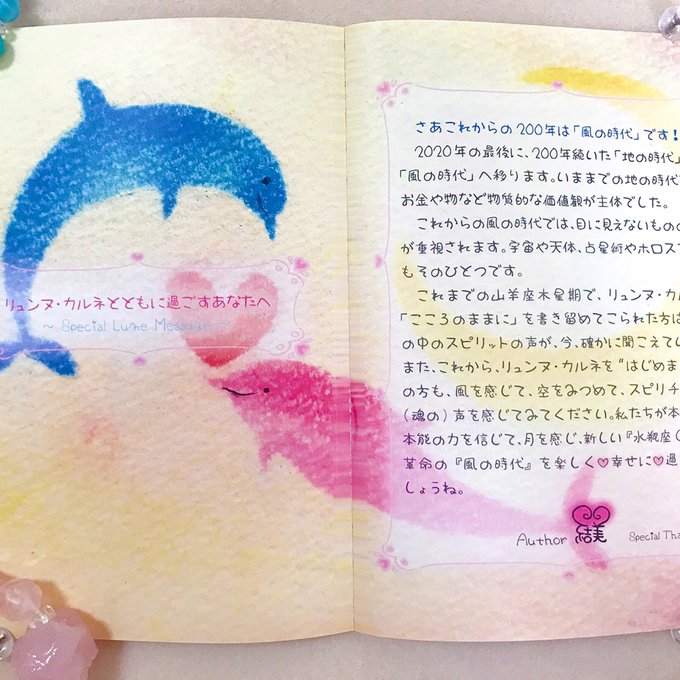 リュンヌ・カルネとともに過ごすあなたへ
～ Special Lune Message ～
さあこれからの200年は「風の時代」です!
2020年の最後に、200年続いた「地の時代」
「風の時代」へ移ります。いままでの地の時代
お金や物など物質的な価値観が主体でした。
これからの風の時代では、目に見えないものの
が重視されます。宇宙や天体、占星術やホロス
もそのひとつです。
これまでの山羊座木星期で、リュンヌ・カル
「こころのままに」を書き留めてこられた方は
の中のスピリットの声が、今、確かに聞こえてい
また、これから、リュンヌ・カルネを"はじめま
の方も、風を感じて、空をみつめて、スピリチ
(魂の)声を感じてみてください。私たちが本
本能の力を信じて、月を感じ、新しい『水瓶座
革命の『風の時代』を楽しく♡幸せに♡過
しょうね。
Author 結美 Special Tha